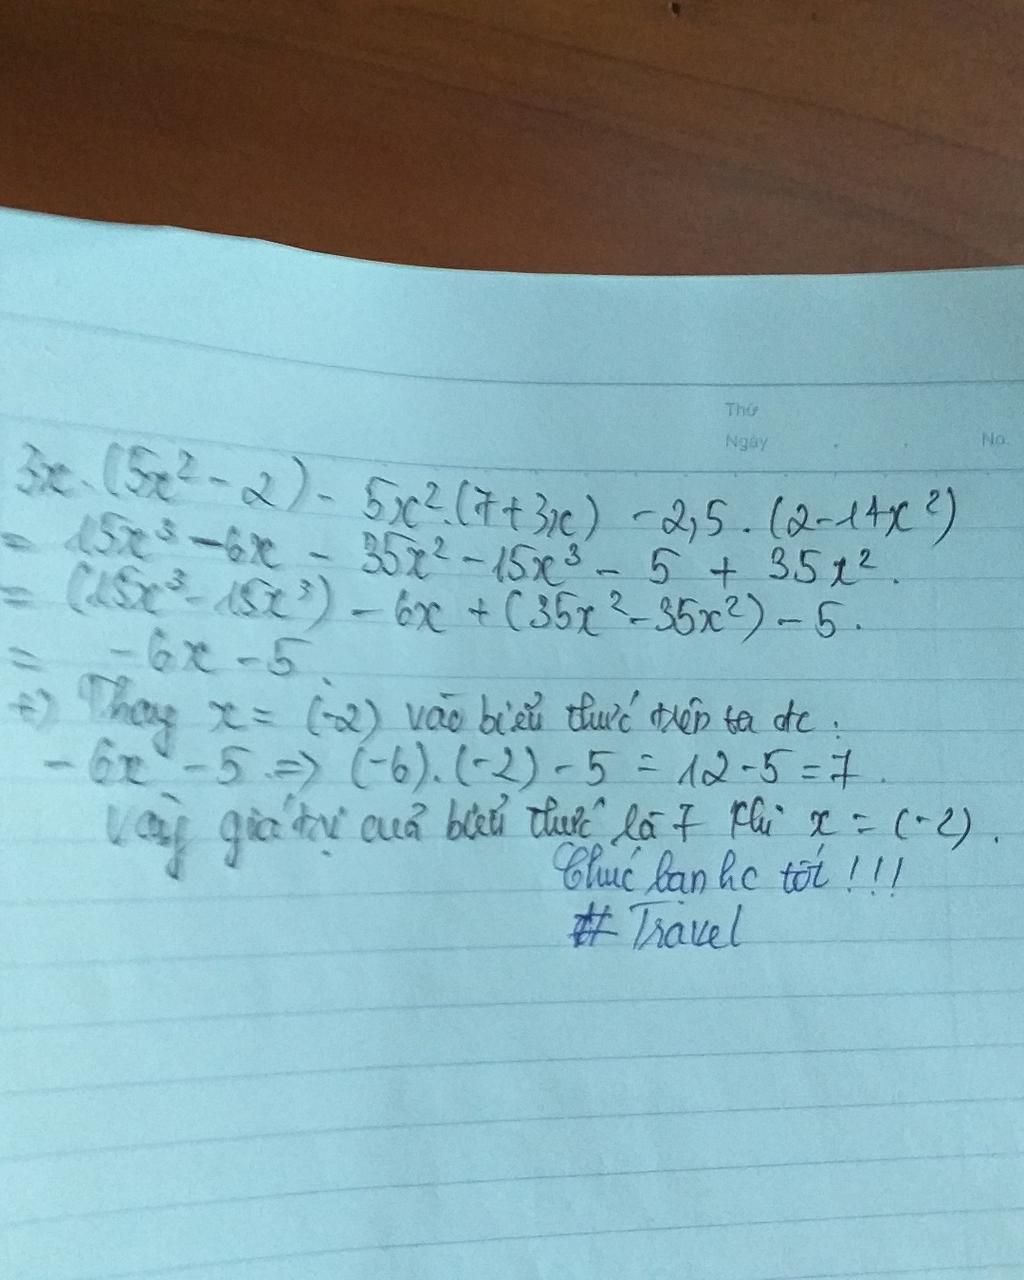 Thứ
Ngày . . No.
3x.(5x² - 2) - 5x².(7+3x) - 2,5.(2-14x²)
= 15x³ - 6x - 35x² - 15x³ - 5 + 35x².
= (15x³ - 15x³) - 6x + (35x² - 35x²) - 5.
= -6x - 5.
+) Thay x = (-2) vào biểu thức trên ta đc :
- 6x - 5 => (-6).(-2) - 5 = 12 - 5 = 7.
Vậy giá trị cuả biểu thức là 7 khi x = (-2).
Chúc bạn hc tốt !!!
# Travel